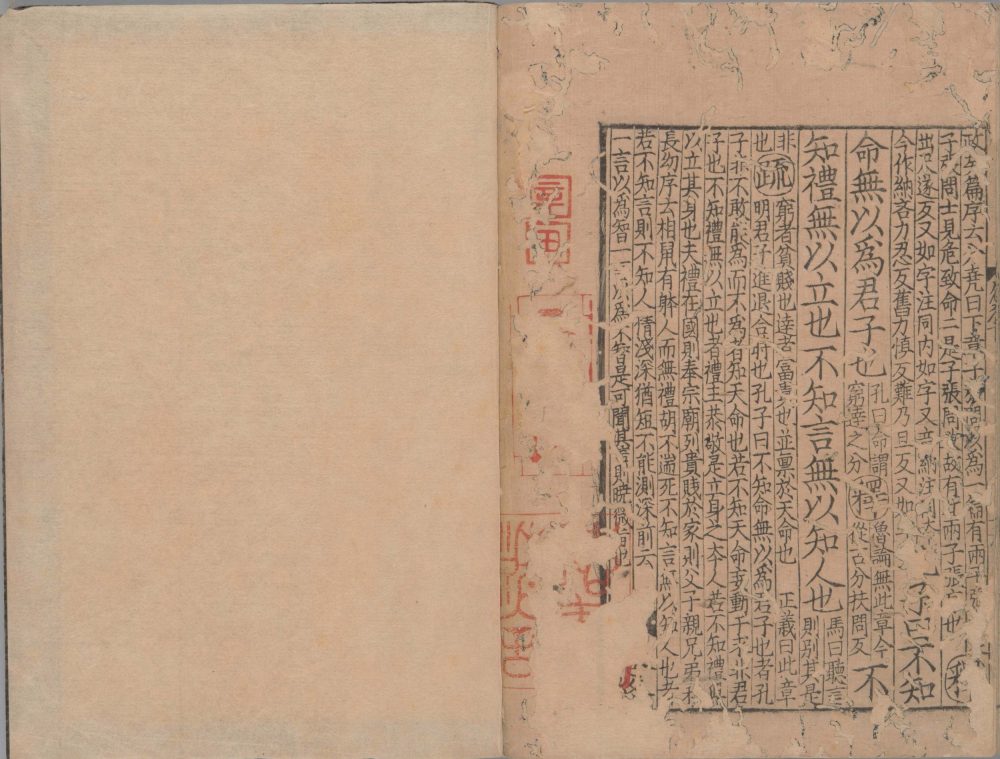 篇序六 堯曰下章子 爲一篇有兩子
子 問士見危致命二是子張問 故有 兩子張 也 釋
出尺遂反又如字注同内如字又音納注
今作納吝力忍反舊力慎反難乃旦反又如
子曰不知
命無以爲君子也
孔曰命謂 魯論無此章今
窮達之分 釋 從古分扶問反
不
知禮無以立也不知言無以知人也
馬曰聽言
則別其是
非
也
疏
窮者貧賤也達者富貴也並稟於天命也 正義曰此章
明君子進退合時也孔子曰不知命無以爲君子也者孔
子非不敢能爲而不爲若知天命也若不知天命妄動 非君
子也不知禮無以立也者禮主恭敬是立身之本人若不知禮
以立其身也夫禮在國則奉宗廟列貴賤於家則父子親兄弟和
長幼序云相鼠有躰人而無禮胡不遄死不知言無以知人也者
若不知言則不知人情淺深猶短不能測深前云
一言以爲智一言以爲不智是可聞其言則曉微旨也